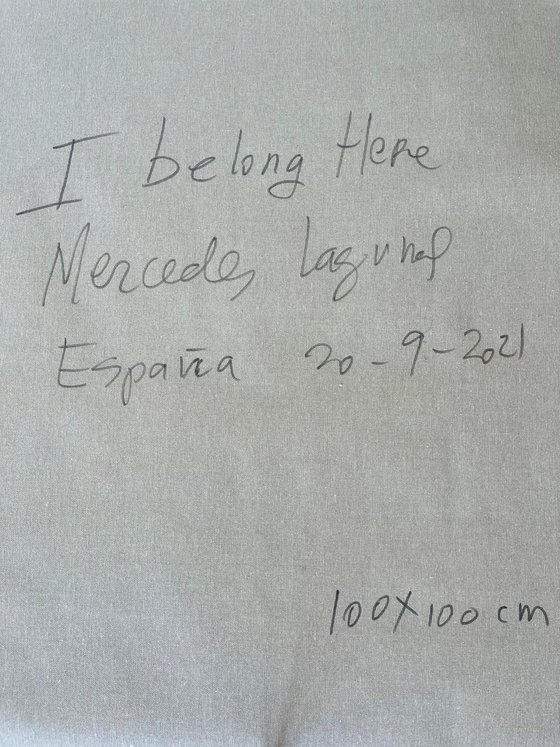 I belong Here
Mercedes Lagunas
España 20-9-2021
100X100 cm